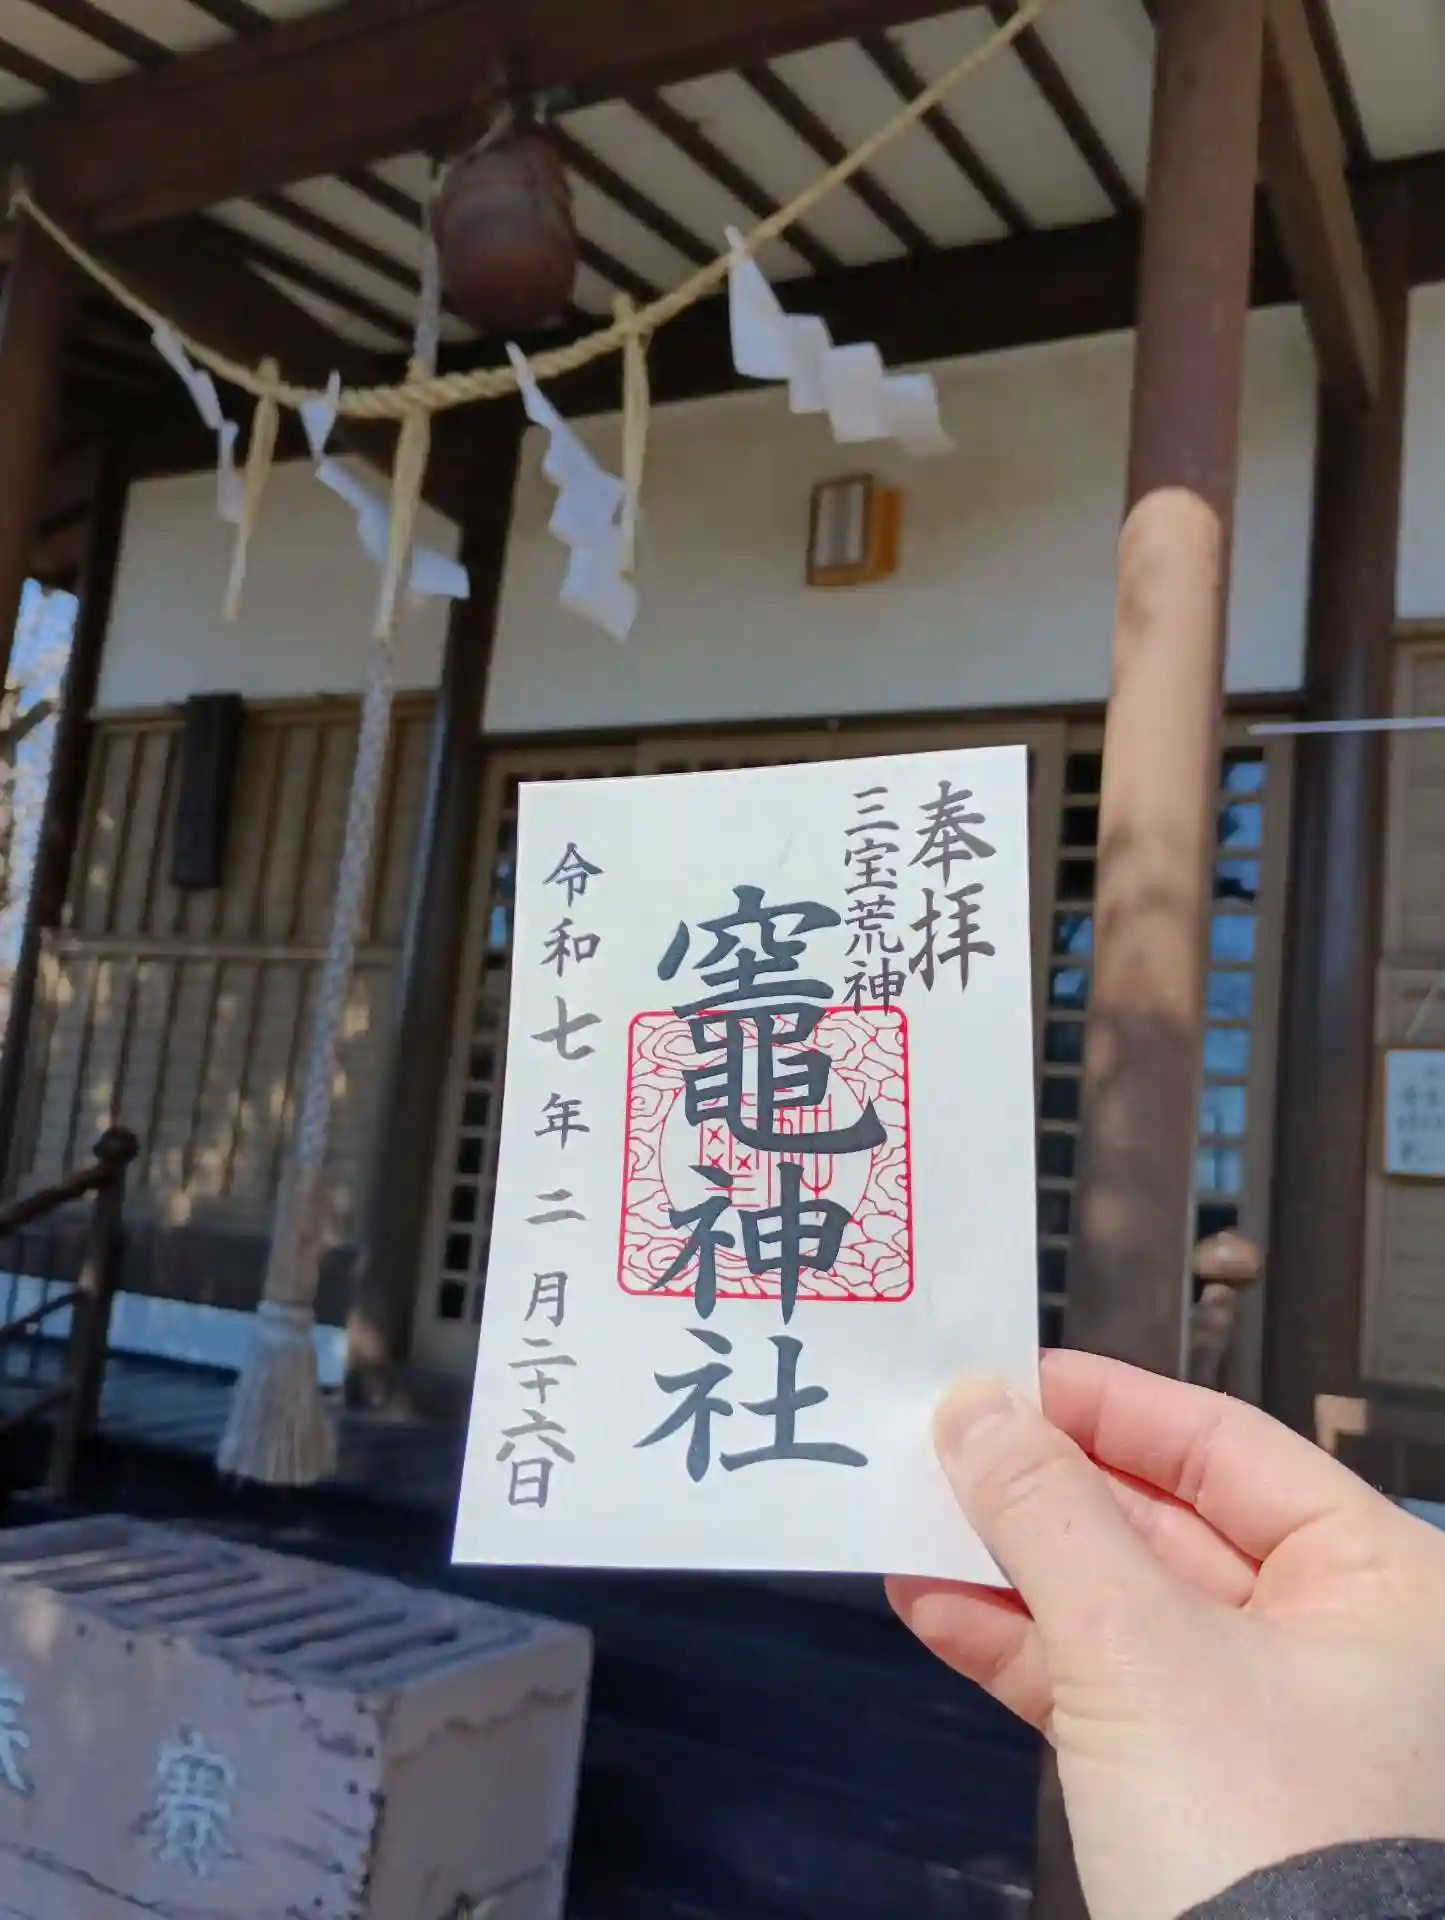 奉拝
三宝荒神
竈神社
令和七年二月二十六日
賽